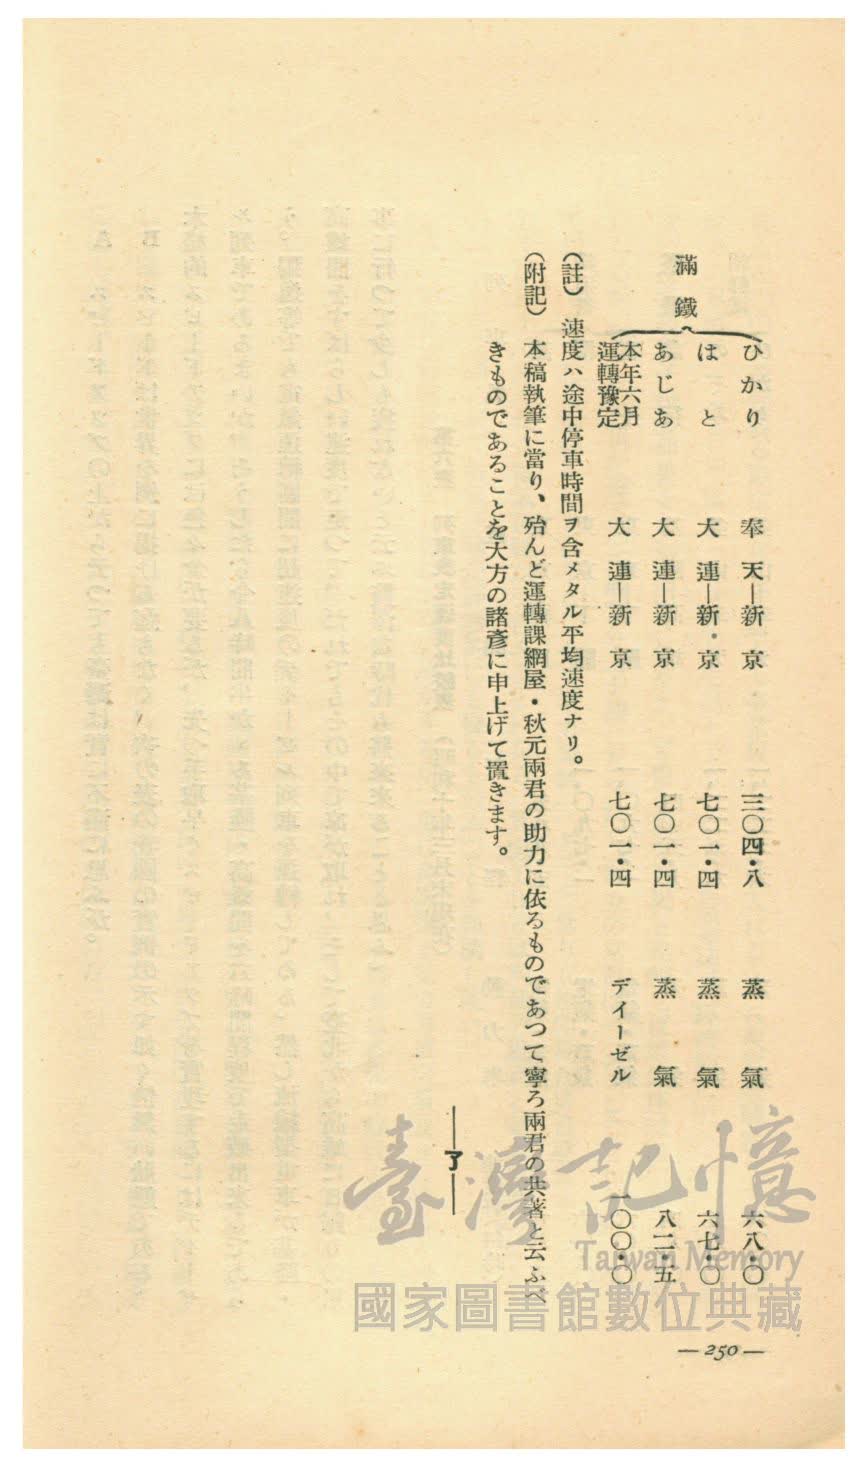 滿鐵
ひかり 奉天―新京 三〇四・八 蒸氣 六八・〇
はと 大連―新京 七〇一・四 蒸氣 六七・〇
あじあ 大連―新京 七〇一・四 蒸氣 八二・五
本年六月
運轉豫定 大連―新京 七〇一・四 デイーゼル 一〇〇・〇
(註) 速度ハ途中停車時間ヲ含メタル平均速度ナリ。
(附記) 本稿執筆に當り、殆んど運轉課網屋・秋元兩君の助力に依るものであつて寧ろ兩君の共著と云ふべ
きものであることを大方の諸彥に申上げて置きます。
―了―
臺灣記憶
Taiwan Memory
國家圖書館數位典藏
— 250 —